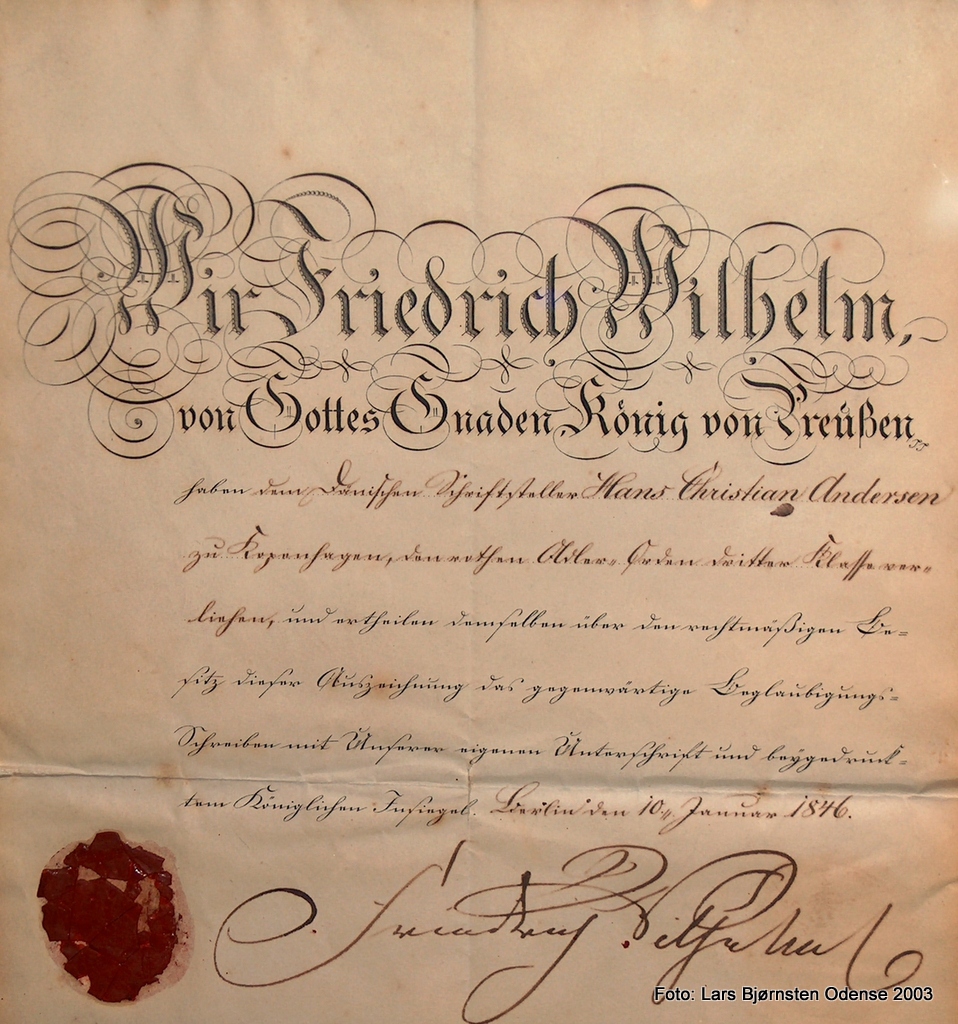 Wir Friedrich Wilhelm,
von Gottes Gnaden König von Preußen
haben dem Dänischen Schriftsteller Hans Christian Andersen
zu Kopenhagen, den rothen Adler-Orden dritter Klasse ver-
liehen, und ertheilen demselben über den rechtmäßigen Be-
sitz dieser Auszeichnung das gegenwärtige Beglaubigungs-
Schreiben mit Unserer eigenen Unterschrift und beygedruck-
tem Königlichen Insiegel. Berlin den 10. Januar 1846.
Friedrich Wilhelm
Foto: Lars Bjørnsten Odense 2003